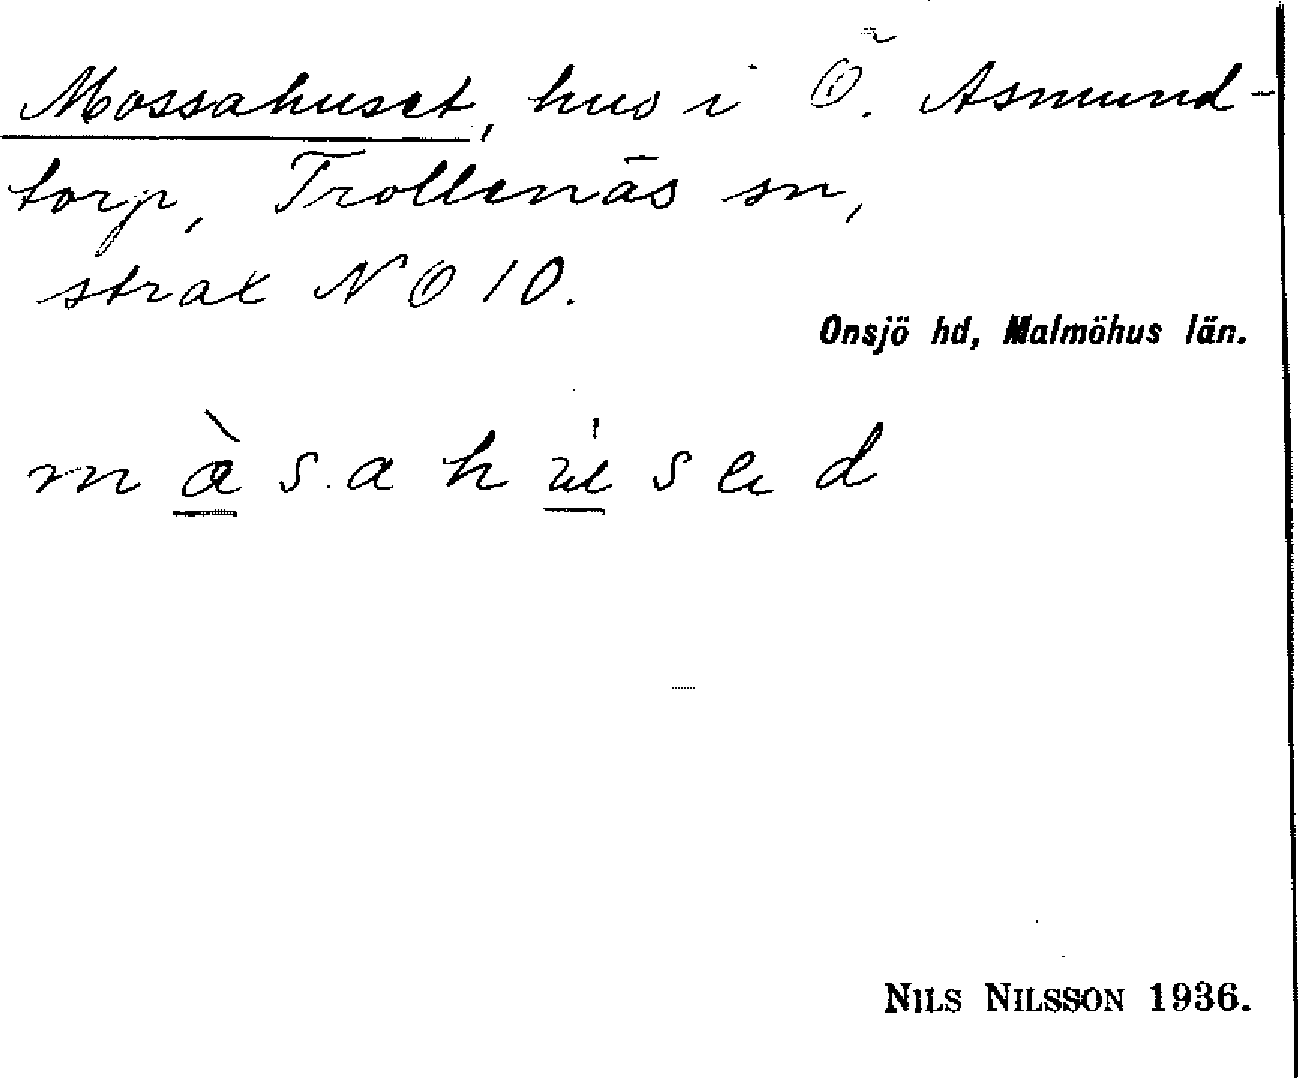 Mossahuset, hus i Ö. Asmund-
torp, Trollenäs sn,
strax NO 10.
Onsjö hd, Malmöhus län.
NILS NILSSON 1936.